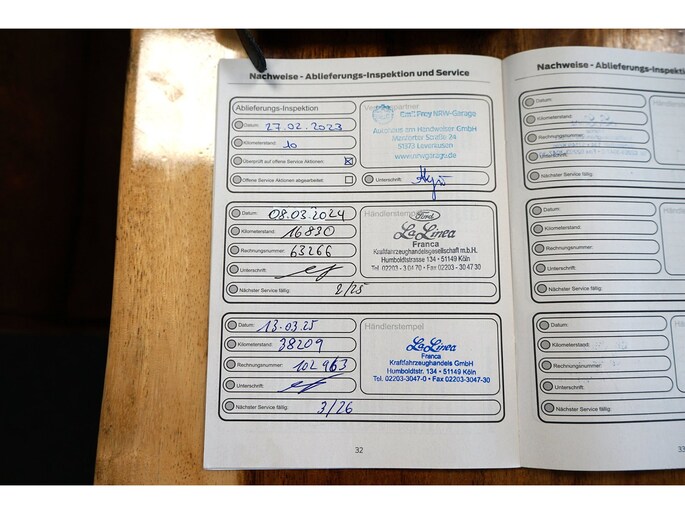 Nachweise - Ablieferungs-Inspektion und Service
Ablieferungs-Inspektion
Datum: 27.02.2023
Kilometerstand: 10
Überprüft auf offene Service Aktionen:
Offene Service Aktionen abgearbeitet:
Emil Frey NRW-Garage
Autohaus am Handweiser GmbH
51373 Leverkusen
www.nrwgarage.de
Unterschrift:
Datum: 08.03.2024
Kilometerstand: 16830
Rechnungsnummer: 63266
Unterschrift:
Nächster Service fällig: 2/25
Händlerstempel
Ford
La Linea
Franca
Kraftfahrzeughandelsgesellschaft m.b.H.
Humboldtstrasse 134 • 51149 Köln
Tel. 02203 - 3 04 70 • Fax 02203 - 30 47 30
Datum: 13.03.25
Kilometerstand: 38209
Rechnungsnummer: 102963
Unterschrift:
Nächster Service fällig: 3/26
Händlerstempel
La Linea
Franca
Kraftfahrzeughandels GmbH
Humboldtstr. 134 • 51149 Köln
Tel. 02203-3047-0 • Fax 02203-3047-30
32
Nachweise - Ablieferungs-Inspekti
Datum:
Kilometerstand:
Rechnungsnummer:
Unterschrift:
Nächster Service fällig:
Händlerstem
Datum:
Kilometerstand:
Rechnungsnummer:
Unterschrift:
Nächster Service fällig:
Händlerst
Datum:
Kilometerstand:
Rechnungsnummer:
Unterschrift:
Nächster Service fällig:
Händlers
33